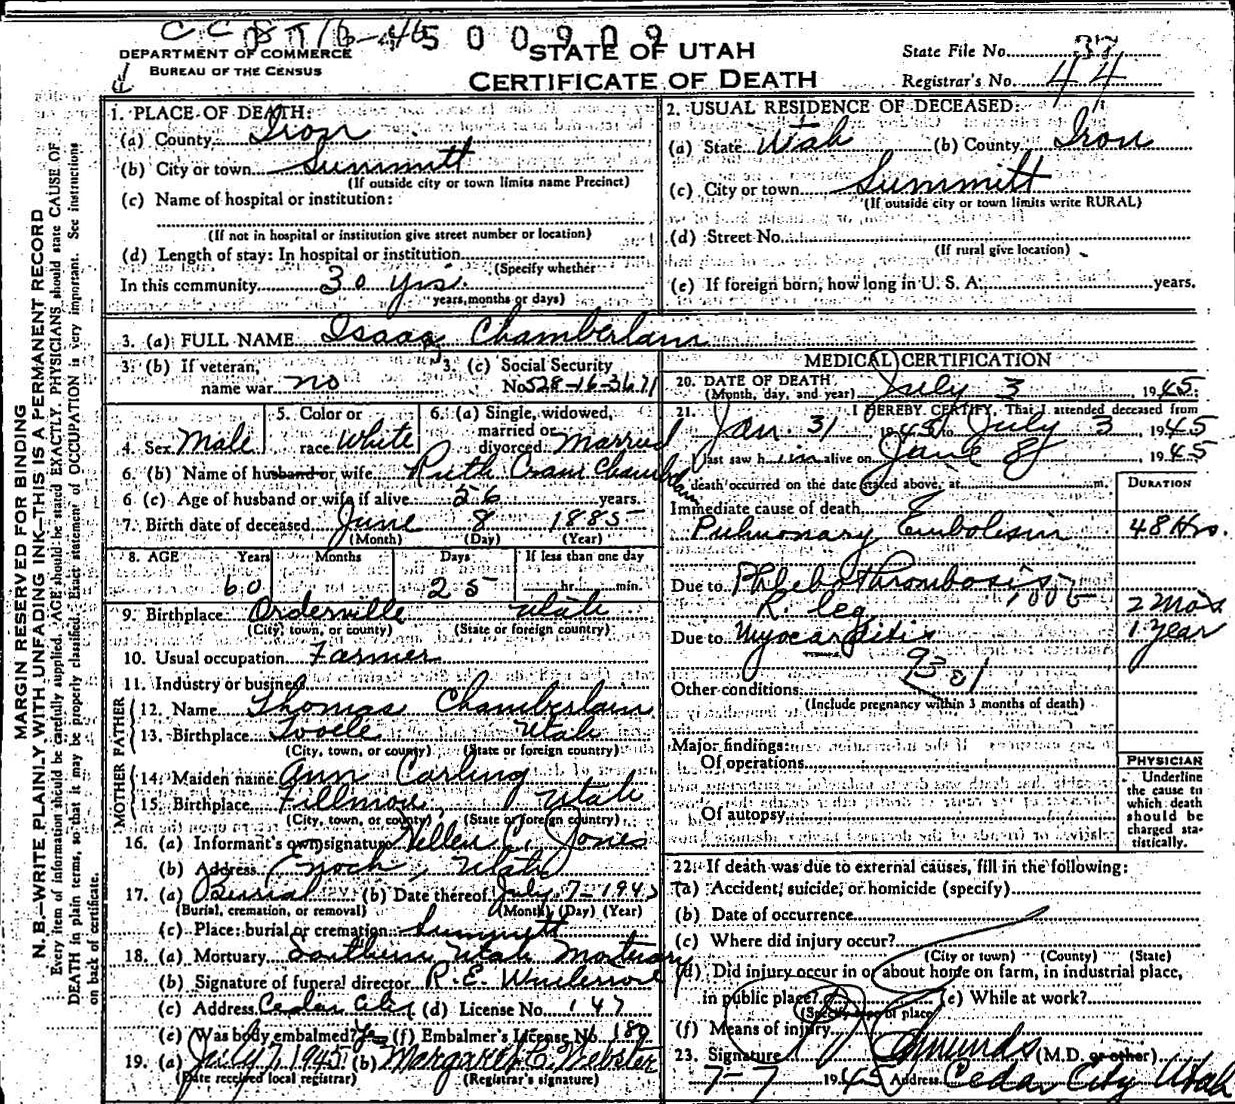 500909
DEPARTMENT OF COMMERCE
BUREAU OF THE CENSUS
STATE OF UTAH
CERTIFICATE OF DEATH
State File No. 37
Registrar's No. 44
MARGIN RESERVED FOR BINDING
N. B.—WRITE PLAINLY WITH UNFADING INK—THIS IS A PERMANENT RECORD
Every item of information should be carefully supplied. AGE should be stated EXACTLY. PHYSICIANS should state CAUSE OF
DEATH in plain terms, so that it may be properly classified. Exact statement of OCCUPATION is very important. See instructions
on back of certificate.
1. PLACE OF DEATH:
(a) County Iron
(b) City or town Summitt
(If outside city or town limits name Precinct)
(c) Name of hospital or institution:
(If not in hospital or institution give street number or location)
(d) Length of stay: In hospital or institution
(Specify whether
In this community 30 yrs.
years, months or days)
2. USUAL RESIDENCE OF DECEASED:
(a) State Utah (b) County Iron
(c) City or town Summitt
(If outside city or town limits write RURAL)
(d) Street No.
(If rural give location)
(e) If foreign born, how long in U. S. A. years.
3. (a) FULL NAME Isaac Chamberlain
3. (b) If veteran,
name war no
3. (c) Social Security
No. 528-16-3671
4. Sex Male
5. Color or
race White
6. (a) Single, widowed,
married or
divorced Married
6. (b) Name of husband or wife Ruth Cram Chamberlain
6. (c) Age of husband or wife if alive 56 years.
7. Birth date of deceased June 8 1885
(Month) (Day) (Year)
8. AGE Years Months Days If less than one day
60 25 hr. min.
9. Birthplace Orderville Utah
(City, town, or county) (State or foreign country)
10. Usual occupation Farmer
11. Industry or business
FATHER
12. Name Thomas Chamberlain
13. Birthplace Tooele Utah
(City, town, or county) (State or foreign country)
MOTHER
14. Maiden name Ann Carling
15. Birthplace Fillmore, Utah
(City, town, or county) (State or foreign country)
16. (a) Informant's own signature Hellen C. Jones
(b) Address Enoch, Utah
17. (a) Burial (b) Date thereof July 7-1945
(Burial, cremation, or removal) (Month) (Day) (Year)
(c) Place: burial or cremation Summitt
18. (a) Mortuary Southern Utah Mortuary
(b) Signature of funeral director R. E.
(c) Address Cedar City (d) License No. 147
(e) Was body embalmed? Yes (f) Embalmer's License No. 180
19. (a) July 7, 1945 (b) Margaret C. Webster
(Date received local registrar) (Registrar's signature)
MEDICAL CERTIFICATION
20. DATE OF DEATH
(Month, day, and year) July 3, 1945
21. I HEREBY CERTIFY, That I attended deceased from
Jan. 31, 1945 to July 3, 1945
I last saw him alive on June 8, 1945
death occurred on the date stated above, at m.
DURATION
Immediate cause of death
Pulmonary Embolism 48 Hrs.
Due to Phlebothrombosis
R. leg 2 mo's
Due to Myocarditis 1 year
Other conditions
(Include pregnancy within 3 months of death)
Major findings:
Of operations
Of autopsy
PHYSICIAN
Underline
the cause to
which death
should be
charged sta-
tistically.
22. If death was due to external causes, fill in the following:
(a) Accident, suicide, or homicide (specify)
(b) Date of occurrence
(c) Where did injury occur?
(City or town) (County) (State)
(d) Did injury occur in or about home on farm, in industrial place,
in public place? (e) While at work?
(Specify type of place
(f) Means of injury
23. Signature Edmunds (M.D. or other)
7-7 1945 Address Cedar City Utah